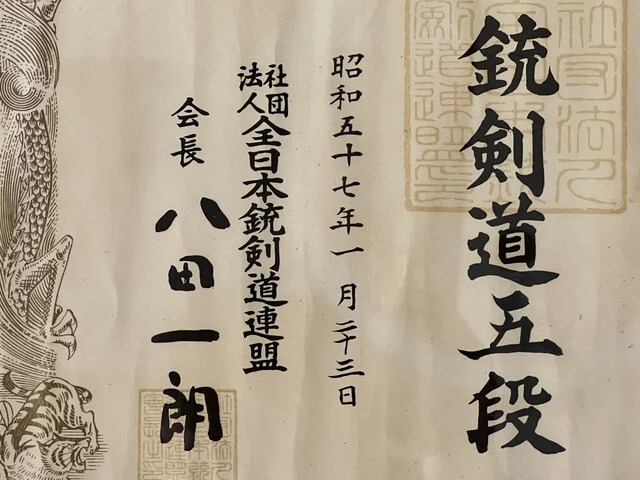 銃剣道五段
昭和五十七年一月二十三日
社団法人全日本銃剣道連盟
会長 八田一朗